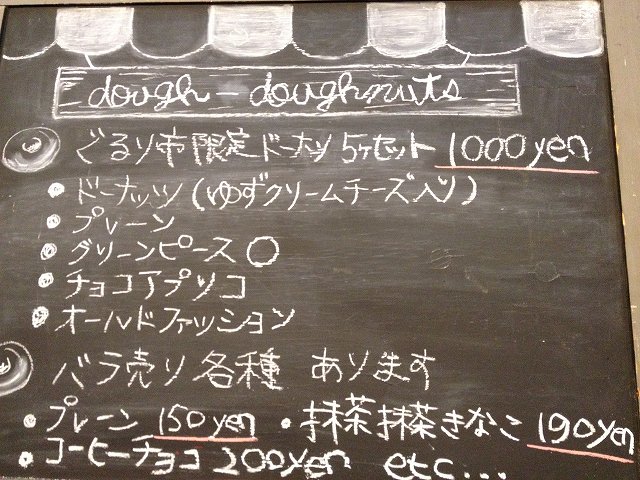 dough-doughnuts
ぐるり市限定ドーナツ5ヶセット 1000yen
・ドーナッツ(ゆずクリームチーズ入り)
・プレーン
・グリーンピース○
・チョコアプリコ
・オールドファッション
バラ売り各種 あります
・プレーン 150yen ・抹茶抹茶きなこ 190yen
・コーヒーチョコ 200yen etc...